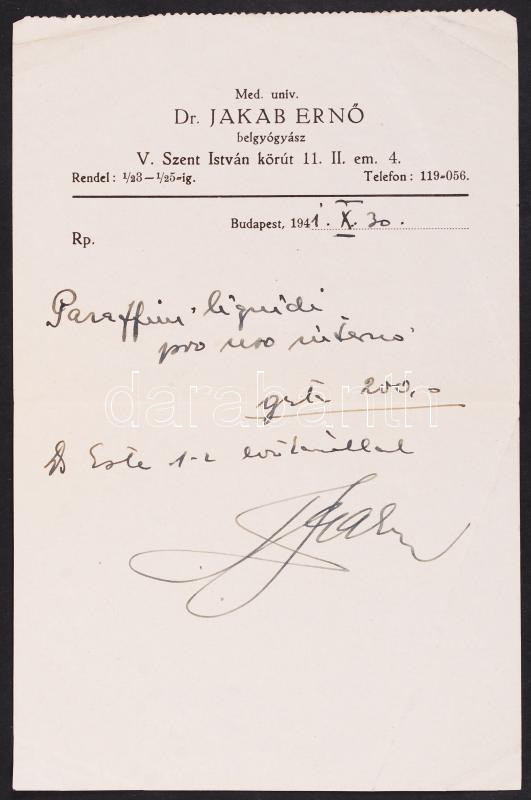 Med. univ.
Dr. JAKAB ERNŐ
belgyógyász
V. Szent István körút 11. II. em. 4.
Rendel: 1/23—1/25-ig. Telefon: 119-056.
Budapest, 1941. X. 30.
Rp.
Paraffini liquidi
pro uso interno
darabanth
gtt 200,0
DS Este 1-2 evőkanállal